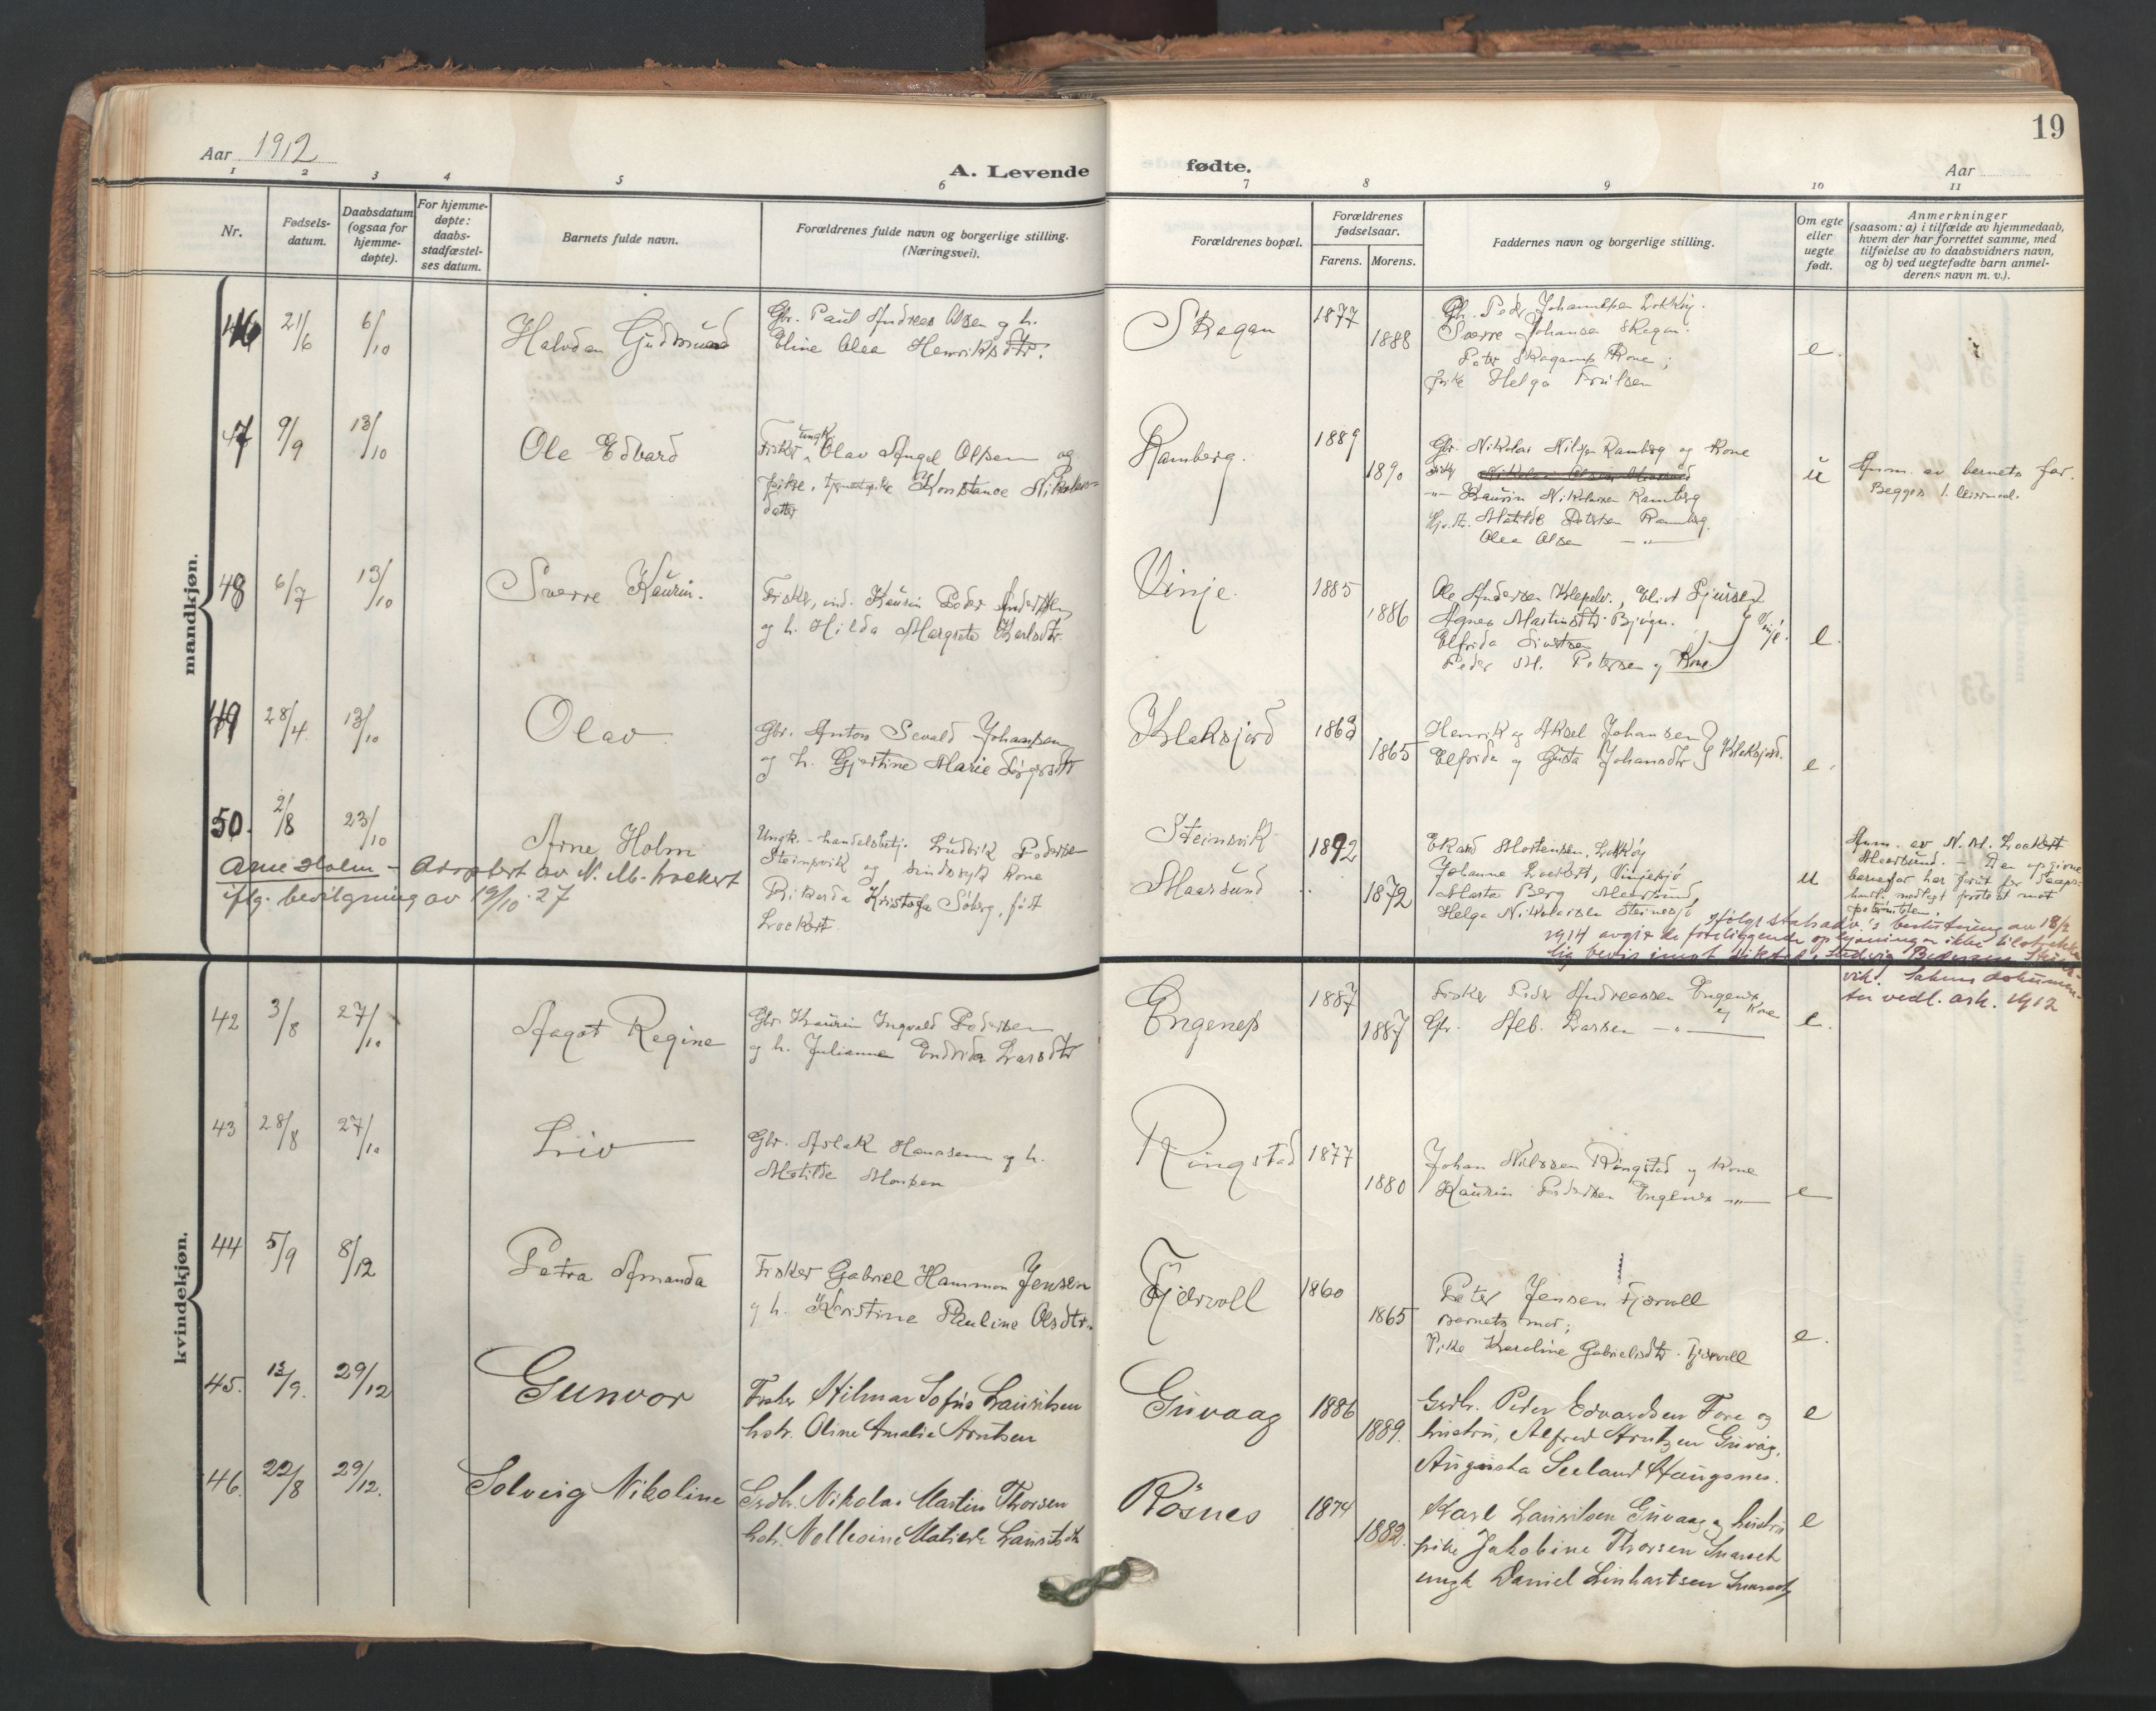 19
Aar 1912
A. Levende fødte.
Aar
1 2 3 4 5 6 7 8 9 10 11
Nr.
Fødsels-
datum.
Daabsdatum
(ogsaa for
hjemme-
døpte).
For hjemme-
døpte:
daabs-
stadfæstel-
ses datum.
Barnets fulde navn.
Forældrenes fulde navn og borgerlige stilling.
(Næringsvei).
Forældrenes bopæl.
Forældrenes
fødselsaar.
Farens. Morens.
Faddernes navn og borgerlige stilling.
Om egte
eller
uegte
født.
Anmerkninger
(saasom: a) i tilfælde av hjemmedaab,
hvem der har forrettet samme, med
tilføielse av to daabsvidners navn,
og b) ved uegtefødte barn anmel-
derens navn m. v.).
mandkjøn.
46 21/6 6/10 Halvdan Gudmund
Gbr. Paul Andreas Olsen og h.
Eline Olea Henriksdtr.
Skagen 1877 1888
Gbr. Peder Johannesen Lokkøy.
Sverre Johansen Skagen.
Peter Skagens Kone;
pike Helga
e.
47 9/9 13/10 Ole Edvard
Fisker, ungk. Olav Angel Olsen og
pike, Konstance Nikolai-
datter
Ramberg. 1889 1890
Gbr. Nikolai Nilsen Ramberg og Kone
Fisker
-"- Kaurin Nikolaisen Ramberg
Matilde Petersen Ramberg.
Olea Olsen -"-
u
Anm. av barnets far.
Begges 1. leierm.
48 6/7 13/10 Sverre Kaurin.
Fisker, ind. Kaurin Peder Andersen
og h. Hilda Margrete Karlsdtr.
Vinje. 1885 1886
Ole Andersen, Eliot Sjursen
Agnes Martinsdtr.
Elfrida Sivertsen
Peder M. Petersen og Kone. } Vinje.
e.
49 28/4 13/10 Olav
Gbr. Anton Sevald Johansen
og h. Gjertine Marie
Klaksjord 1863 1865
Henrik og Aksel Johansen
Elfrida og Gusta Johansdtr } Klaksjord.
e.
50. 2/8 23/10 Arne Holm
Ungk. handelsbetj. Ludvik Pedersen
Steinsvik og sindssyk kone
Rikarda Kristofa Søberg, født
Lockert
Steinsvik
Maarsund 1892 1872
Ekard Mortensen, Lokkøy
Johanne Lockert, Vinjesjø
Marta Berg Maarsund,
Helga Nikolaisen Steinesjø
u
Anm. av N. M. Lockert
Maarsund. - Den opgivne
barnefar har forut for daaps-
handl. nedlagt protest mot
paterniteten.
Arne Holm - Adoptert av N. M. Lockert
iflg. bevilgning av 19/10 27
Ifølge statsadv.'s beslutning av 18/2
1914 avgir de foreliggende oplysninger ikke tilstrække-
lig bevis imot sigtede, Ludvig Pedersen Steins-
vik. Sakens dokumen-
ter vedl. ark. 1912
kvindekjøn.
42 3/8 27/10 Aagot Regine
Gbr. Kaurin Ingvald Pedersen
og h. Julianna Endrida Larsdtr
Engenes 1887 1887
Fisker Peder Andreassen Engenes og Kone
Gbr. Alb. Larsen -"-
e.
43 28/8 27/10 Liv
Gbr. Aslak Hanssen og h.
Matilde Monsen
Ringstad 1877 1880
Johan Nilssen Ringstad og Kone
Kaurin Pedersen Engenes -"-
e
44 5/9 8/12 Petra Amanda
Fisker Gabriel Hammon Jensen
og h. Kristine Pauline Olsdtr.
Fjærvoll 1860 1865
Peter Jensen Fjærvoll
Barnets mor;
Pike Karoline Gabrielsdtr. Fjærvoll
e.
45. 12/9. 29/12 Gunvor
Fisker Hilmar Sofus Lauritsen
hstr. Oline Amalie Arntsen
Guvaag 1886 1889.
Grdbr. Peter Edvardsen Fore og
hustru, Alfred Arntzen Guvåg,
Augusta Seeland Haugsnes.
e
46. 22/8 29/12. Solveig Nikoline
Grdbr. Nikolai Martin Thorsen
hstr. Matilde Lauritsdtr
Røsnes 1874 1882.
Karl Lauritsen Guvaag og hustru
pike Jakobine Thorsen Smaaset
ungk Daniel Linhartsen
e